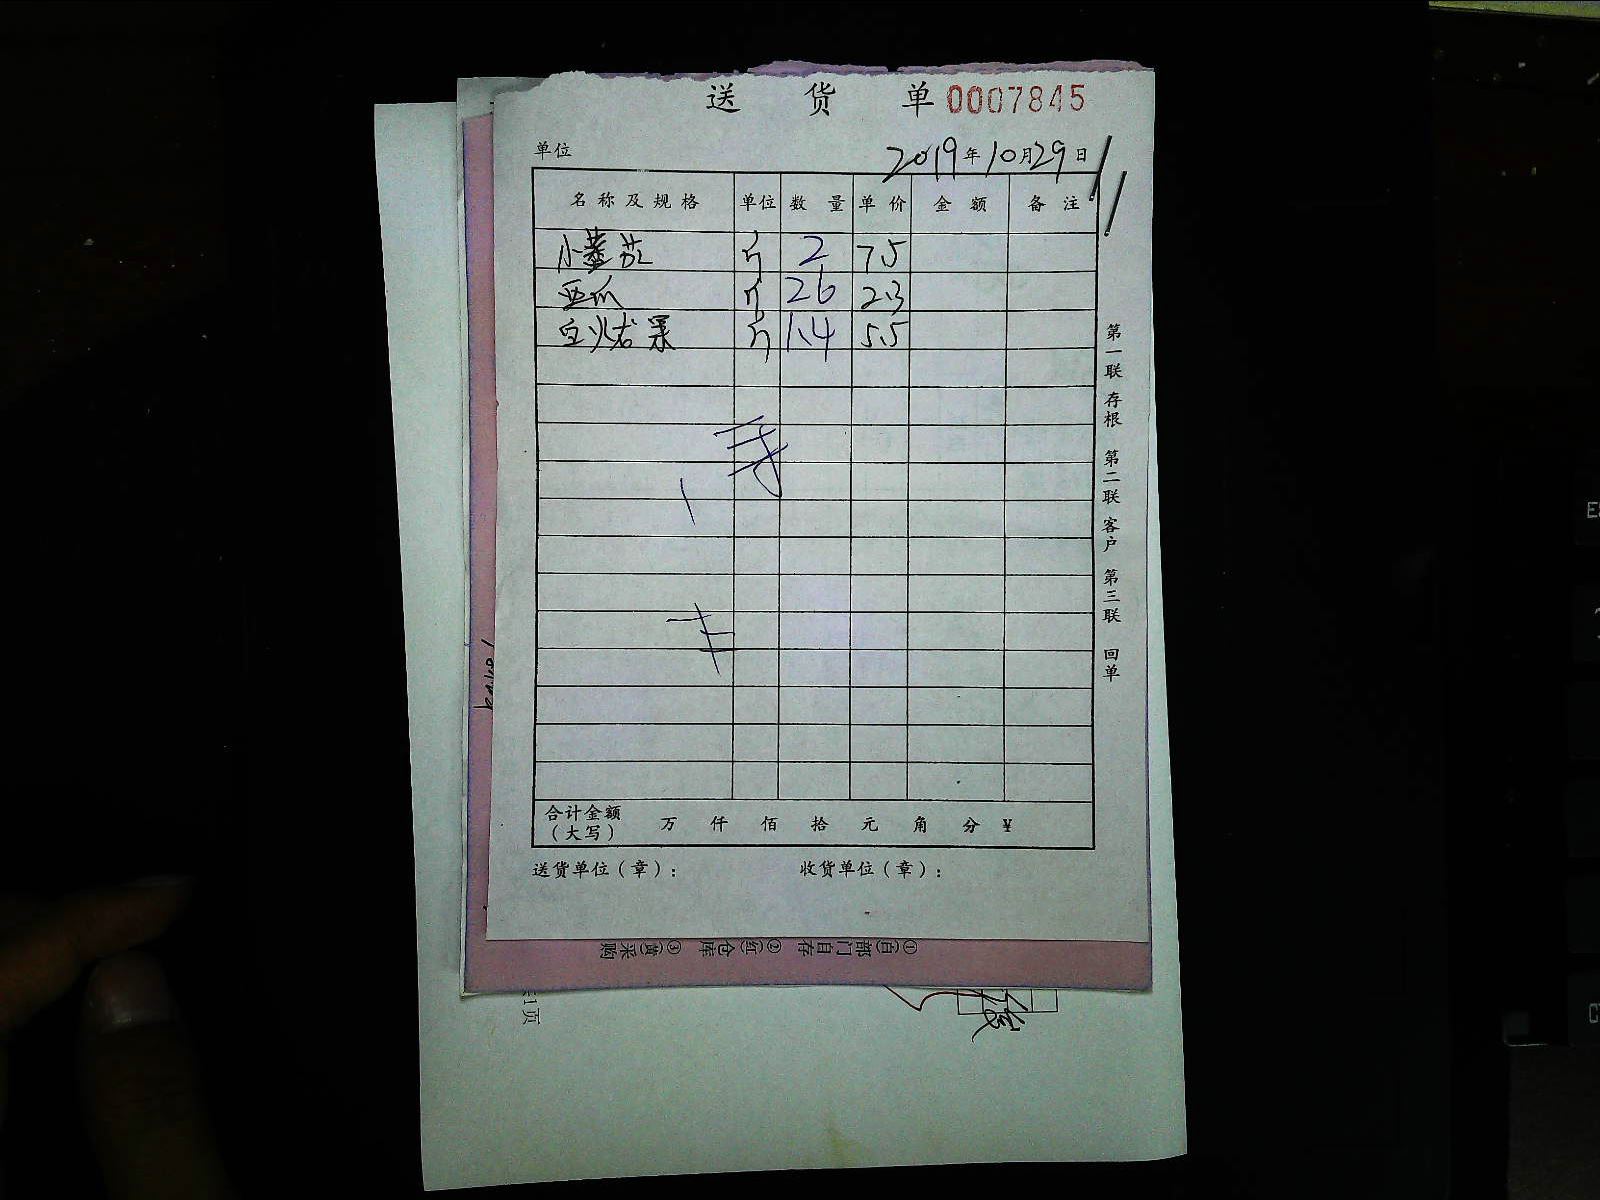 送 货 单 0007845
单位 2019年10月29日
名称及规格 单位 数量 单价 金额 备注
小蕃茄 斤 2 7.5
西瓜 斤 26 2.3
白火龙果 斤 1.4 5.5
合计金额
（大写） 万 仟 佰 拾 元 角 分 ¥
送货单位（章）： 收货单位（章）：
第一联 存根 第二联 客户 第三联 回单
①(白)部门自存 ②(红)仓库 ③(黄)采购